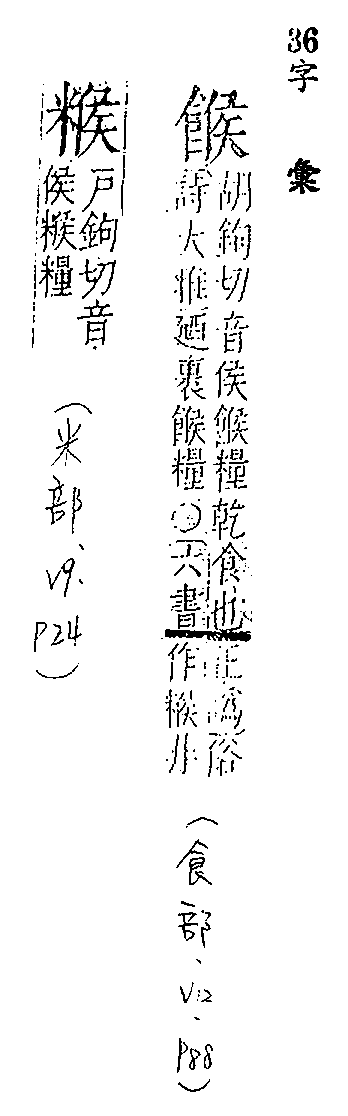 36字 彙
餱
胡鉤切音侯餱糧乾食也
詩大雅廼裹餱糧○六書
正譌俗
作糇非
(食部、V12、P88)
糇
戶鉤切音
侯糇糧
(米部、V9、P24)